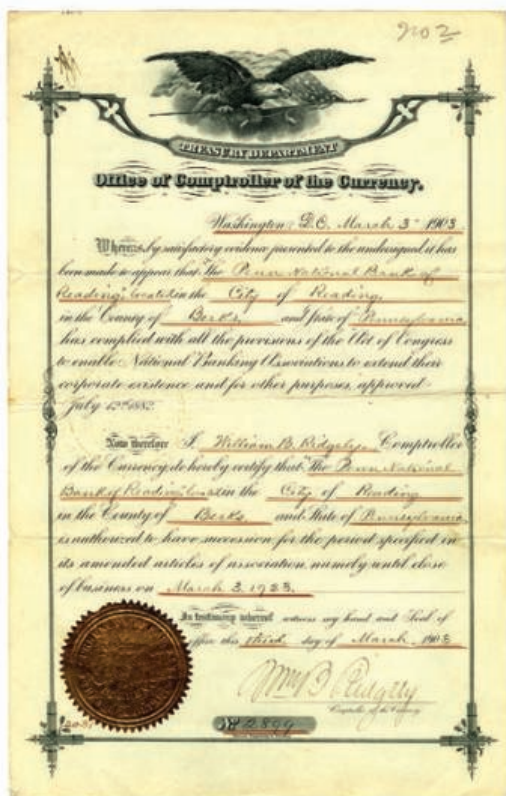 No 2
TREASURY DEPARTMENT
Office of Comptroller of the Currency.
Washington, D.C. March 3rd 1903
Whereas, by satisfactory evidence presented to the undersigned, it has
been made to appear that "The Penn National Bank of
Reading," located in the City of Reading,
in the County of Berks, and State of Pennsylvania
has complied with all the provisions of the Act of Congress
to enable National Banking Associations to extend their
corporate existence and for other purposes, approved
July 12th 1882.
Now therefore I, William B. Ridgely, Comptroller
of the Currency, do hereby certify that "The Penn National
Bank of Reading," located in the City of Reading
in the County of Berks, and State of Pennsylvania
is authorized to have succession for the period specified in
its amended articles of association, namely until close
of business on March 3, 1923.
In testimony whereof witness my hand and Seal of
office this third day of March, 1903
Wm B Ridgely
Comptroller of the Currency
No 2899